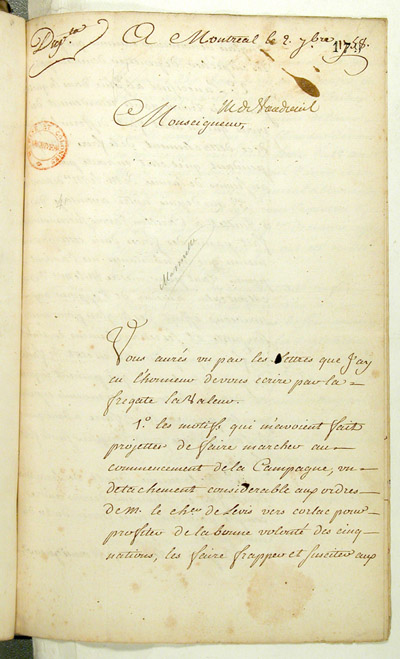 Dup.ta
A Montreal le 2. 7bre 1758.
M. de Vaudreuil
Monseigneur,
Vous aurés vu par les lettres que J'ay
eu l'honneur de vous ecrire par la
fregate la Valeur.
1.° les motifs qui m'avoient fait
projetter de faire marcher au
commencement de la Campagne, un
detachement considerable aux ordres
de M. le cher de Levis vers corlac pour
profiter de la bonne volonté des cinq
nations, les faire frapper et susciter aux